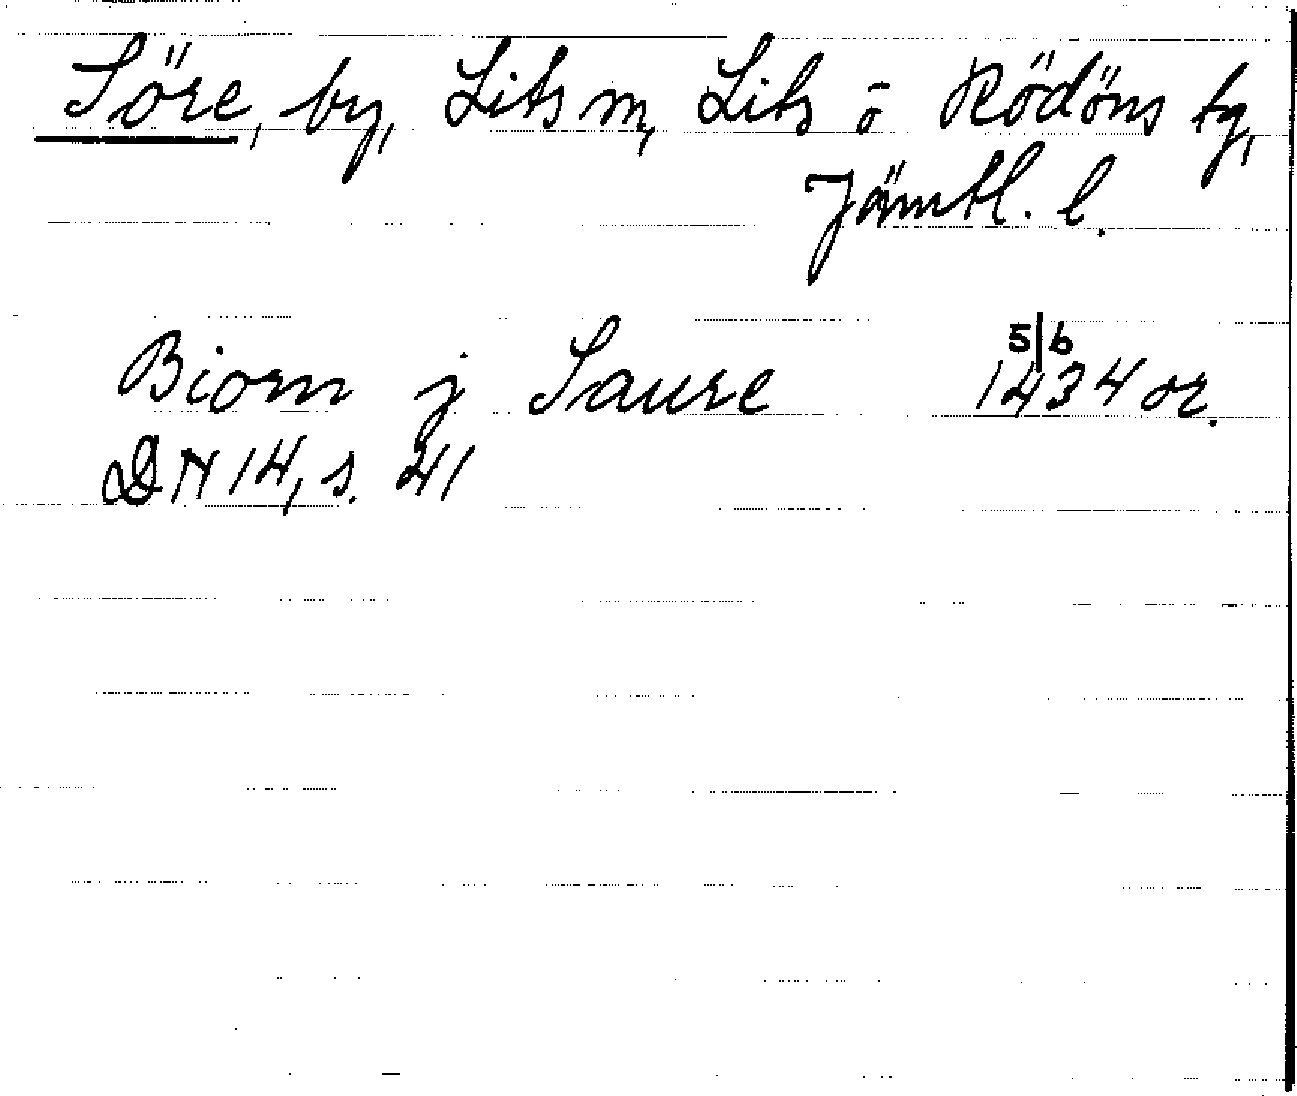 Söre, by, Lits m, Lits o Rödöns tg,
Jämtl. l.
Biorn j Saure 5/6 1434 or.
DN 14, s. 41